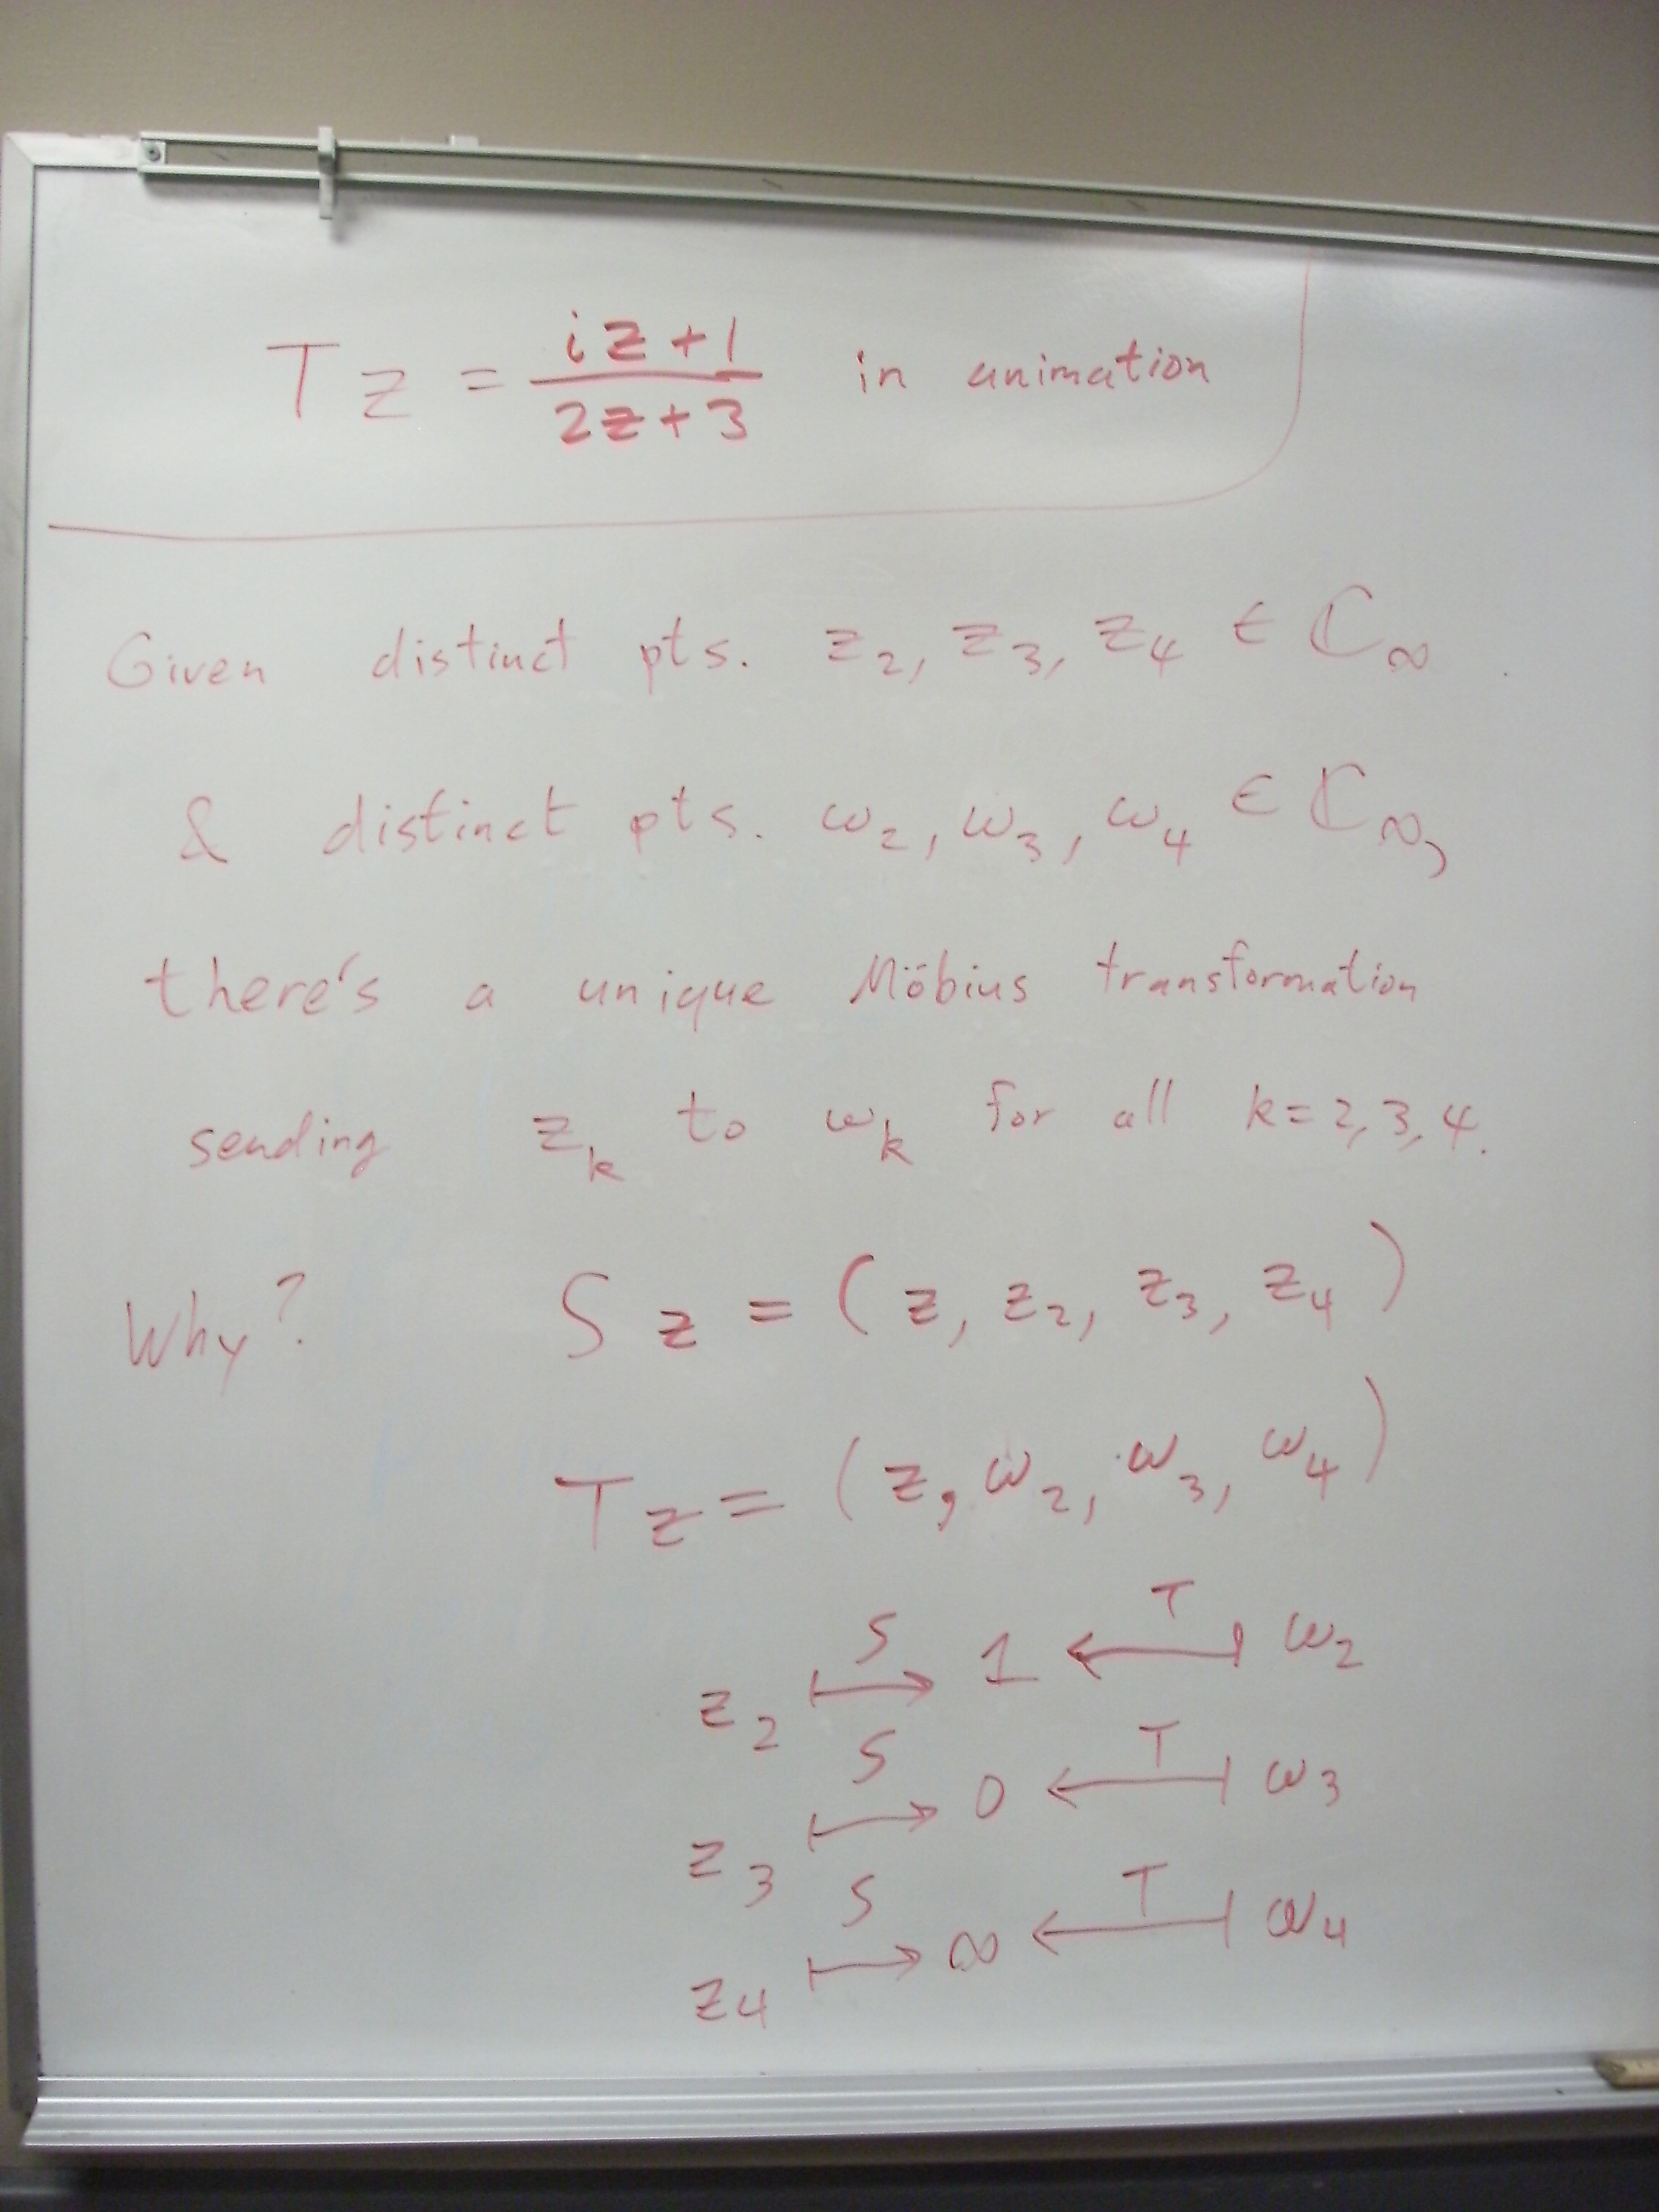 Tz = (iz+1)/(2z+3) in animation
Given distinct pts. z₂, z₃, z₄ ∈ ℂ∞
& distinct pts. ω₂, ω₃, ω₄ ∈ ℂ∞,
there's a unique Möbius transformation
sending z_k to ω_k for all k=2,3,4.
Why? Sz = (z, z₂, z₃, z₄)
Tz = (z, ω₂, ω₃, ω₄)
S T
z₂ ↦ 1 ↤ ω₂
S T
z₃ ↦ 0 ↤ ω₃
S T
z₄ ↦ ∞ ↤ ω₄